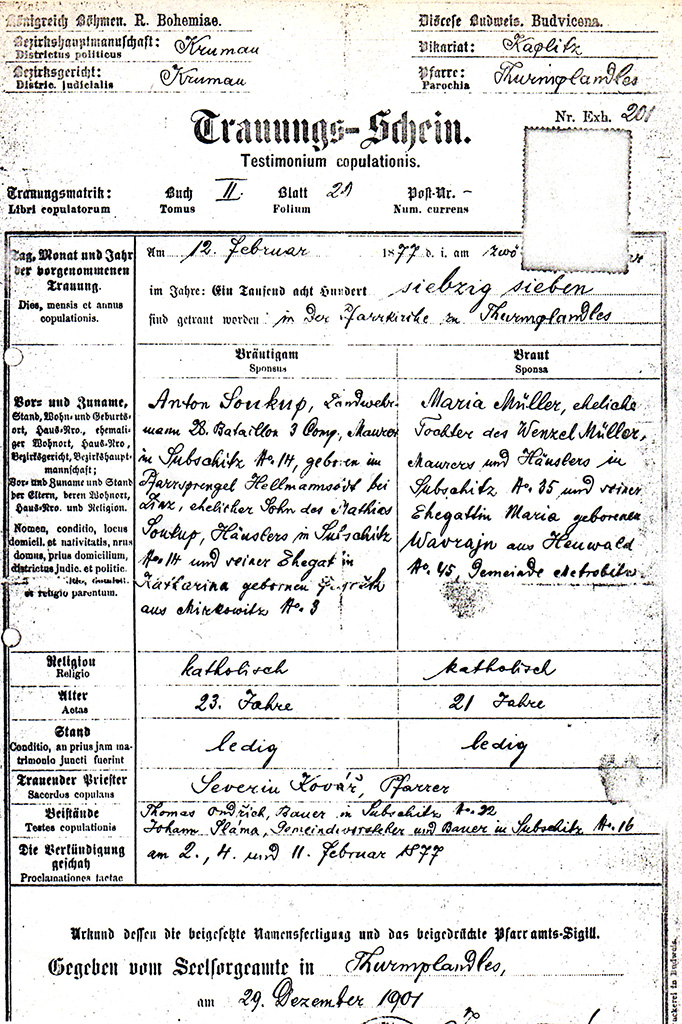 Königreich Böhmen. R. Bohemiae.
Bezirkshauptmannschaft: Krumau
Districtus politicus
Bezirksgericht: Krumau
Distric. judicialis
Diöcese Budweis. Budvicena.
Vikariat: Kaplitz
Pfarre: Thurmplandles
Parochia
Nr. Exh. 201
Trauungs-Schein.
Testimonium copulationis.
Trauungsmatrik: Buch II. Blatt 21 Post-Nr. –
Libri copulatorum Tomus Folium Num. currens
Tag, Monat und Jahr
der vorgenommenen
Trauung.
Dies, mensis et annus
copulationis.
Am 12. Februar 1877 d. i. am zwö
im Jahre: Ein Tausend acht Hundert siebzig sieben
sind getraut worden in der Pfarrkirche zu Thurmplandles
Bräutigam
Sponsus
Braut
Sponsa
Vor- und Zuname,
Stand, Wohn- und Geburts-
ort, Haus-Nro., ehemali-
ger Wohnort, Haus-Nro.,
Bezirksgericht, Bezirkshaupt-
mannschaft;
Vor- und Zuname und Stand
der Eltern, deren Wohnort,
Haus-Nro. und Religion.
Nomen, conditio, locus
domicil. et nativitatis, nrus
domus, prius domicilium,
districtus judic. et politic.
et religio parentum.
Anton Soukup, Landwehr-
mann 28. Bataillon 3 Comp., Maurer
in Subschitz No. 14, geboren im
Pfarrsprengel Hellmannsödt bei
Linz, ehelicher Sohn des Mathias
Soukup, Häuslers in Subschitz
No. 14 und seiner Ehegattin
Katharina gebornen
aus Mirkowitz No. 3
Maria Müller, eheliche
Tochter des Wenzel Müller,
Maurers und Häuslers in
Subschitz No. 35 und seiner
Ehegattin Maria geborenen
Wavrajn aus Heuwald
No. 45, Gemeinde Metrobitz
Religion
Religio
katholisch katholisch
Alter
Aetas
23. Jahre 21 Jahre
Stand
Conditio, an prius jam ma-
trimonio juncti fuerint
ledig ledig
Trauender Priester
Sacerdos copulans
Severin Kovář, Pfarrer
Beistände
Testes copulationis
Thomas Ondřich, Bauer in Subschitz No. 22
Johann Sláma, Gemeindevorsteher und Bauer in Subschitz No. 16
Die Verkündigung
geschah
Proclamationes factae
am 2., 4. und 11. Februar 1877
Urkund dessen die beigesetzte Namensfertigung und das beigedrückte Pfarramts-Sigill.
Gegeben vom Seelsorgeamte in Thurmplandles,
am 29. Dezember 1901